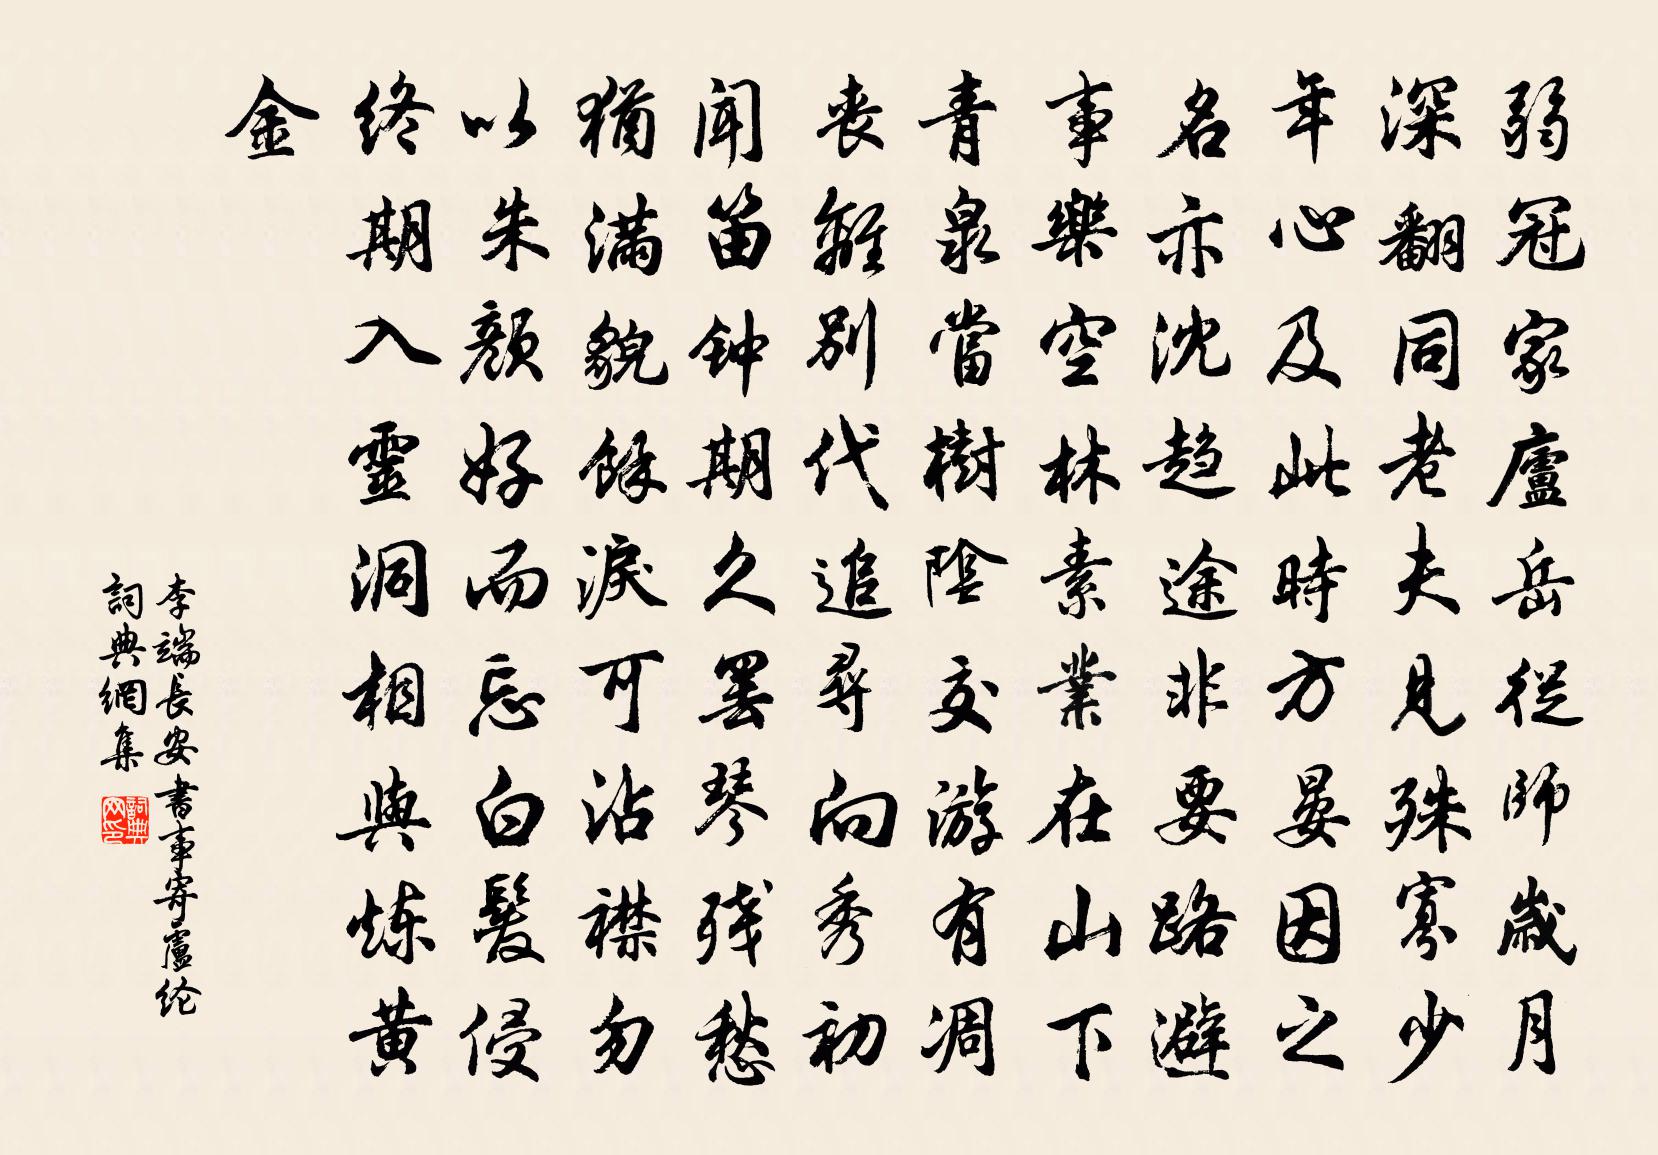 弱冠家廬岳從師歲月
深翻同老夫見殊寡少
年心及此時方晏因之
名亦沈趋途非要路避
事樂空林素業在山下
青泉當樹陰交游有凋
丧離別代追尋向秀初
闻笛钟期久罢琴残愁
猶滿貌餘淚可沾襟勿
以朱顏好而忘白髮侵
终期入靈洞相與炼黄
金
李端長安書事寄盧纶
詞典網集
詞典网印